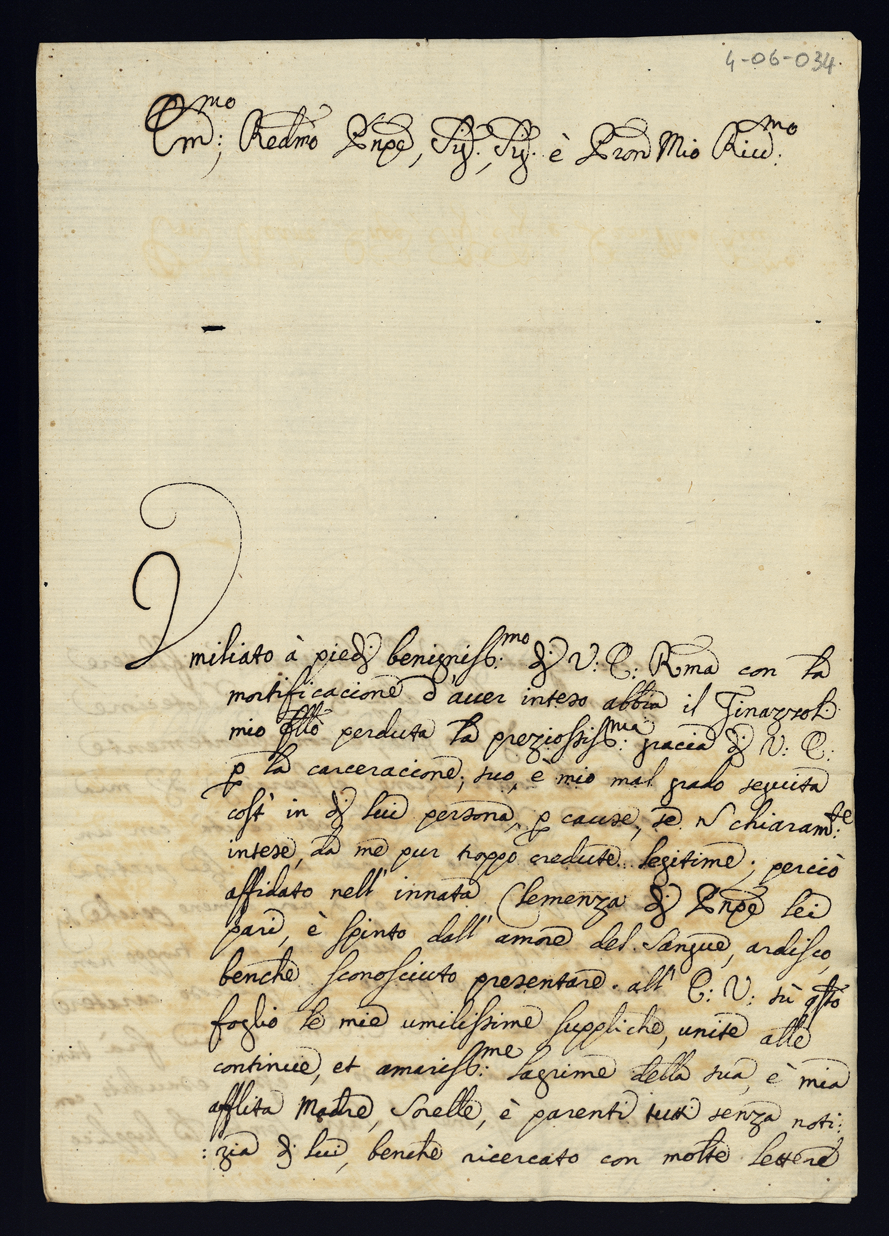 4-06-034
Em:mo; Redmo Pnpe, Sig:, Sig: è Pron Mio Riu:mo
Vmiliato à piedj benigniss:mo dj V: E: Rma con la
mortificacione d'auer inteso abbia il Tinazzoli
mio fllo perduta la preziosiss:ma gracia dj V: E:
p la carceracione, suo, è mio mal grado seguita
costì in dj lui persona, p cause, se n chiaram:te
intese, da me pur troppo credute legitime; perciò
affidato nell' innata Clemenza dj Pnpe lei
pari, è spinto dall' amore del Sangue, ardisco,
benche sconosciuto presentare all' E: V: sù qsto
foglio le mie umilissime suppliche, unite alle
continue, et amariss:me lagrime della sua, è mia
afflita Madre, Sorelle, è parenti tutti senza noti:
:zia dj lui, benche ricercato con molte lettere